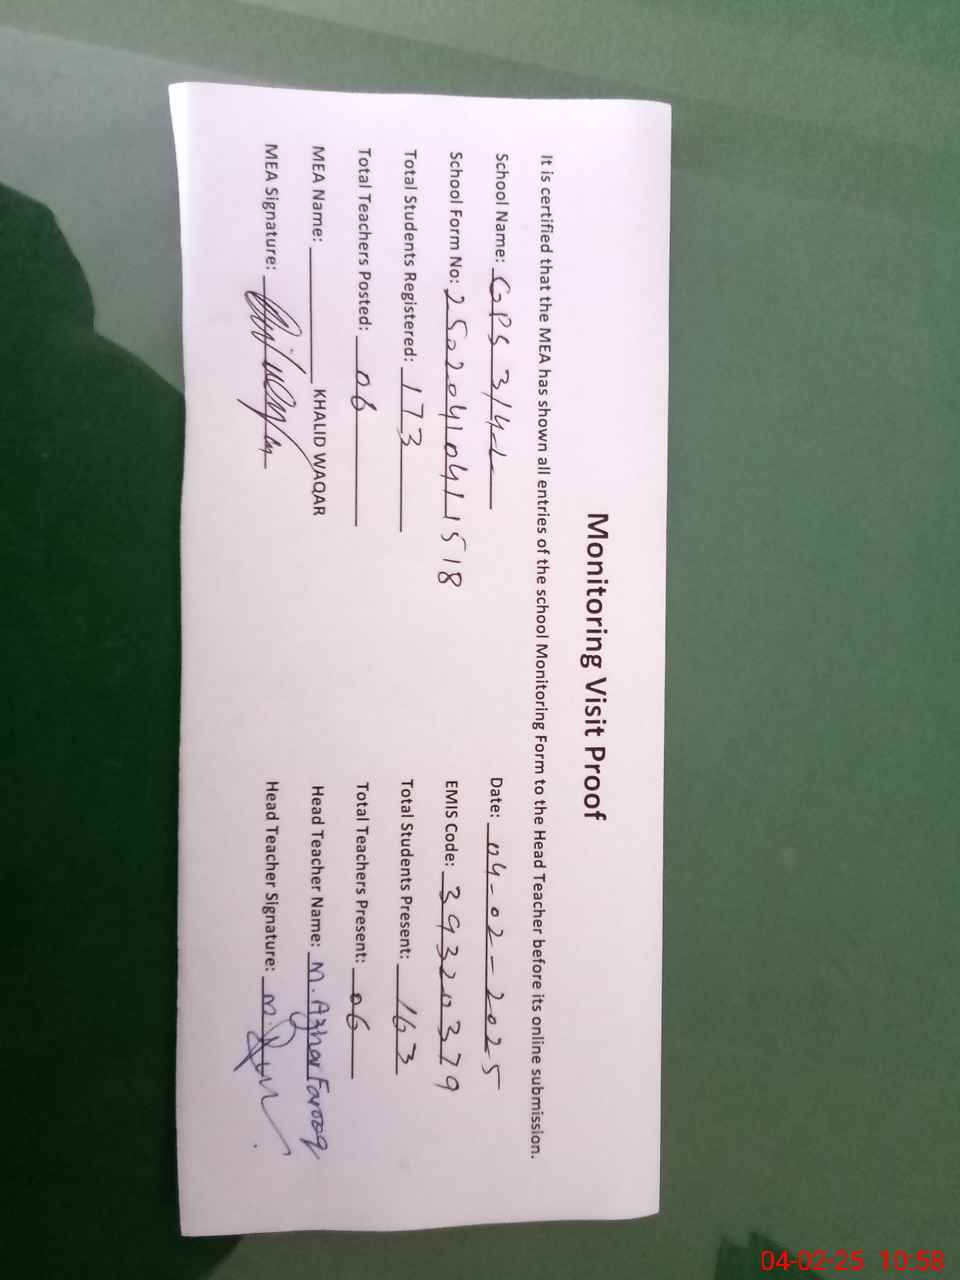 Monitoring Visit Proof
It is certified that the MEA has shown all entries of the school Monitoring Form to the Head Teacher before its online submission.
School Name: GPS 3/4-L Date: 04-02-2025
School Form No: 25020410411518 EMIS Code: 39320379
Total Students Registered: 173 Total Students Present: 163
Total Teachers Posted: 06 Total Teachers Present: 06
MEA Name: KHALID WAQAR Head Teacher Name: M. Azhar Farooq
MEA Signature: Head Teacher Signature:
04-02-25 10:58